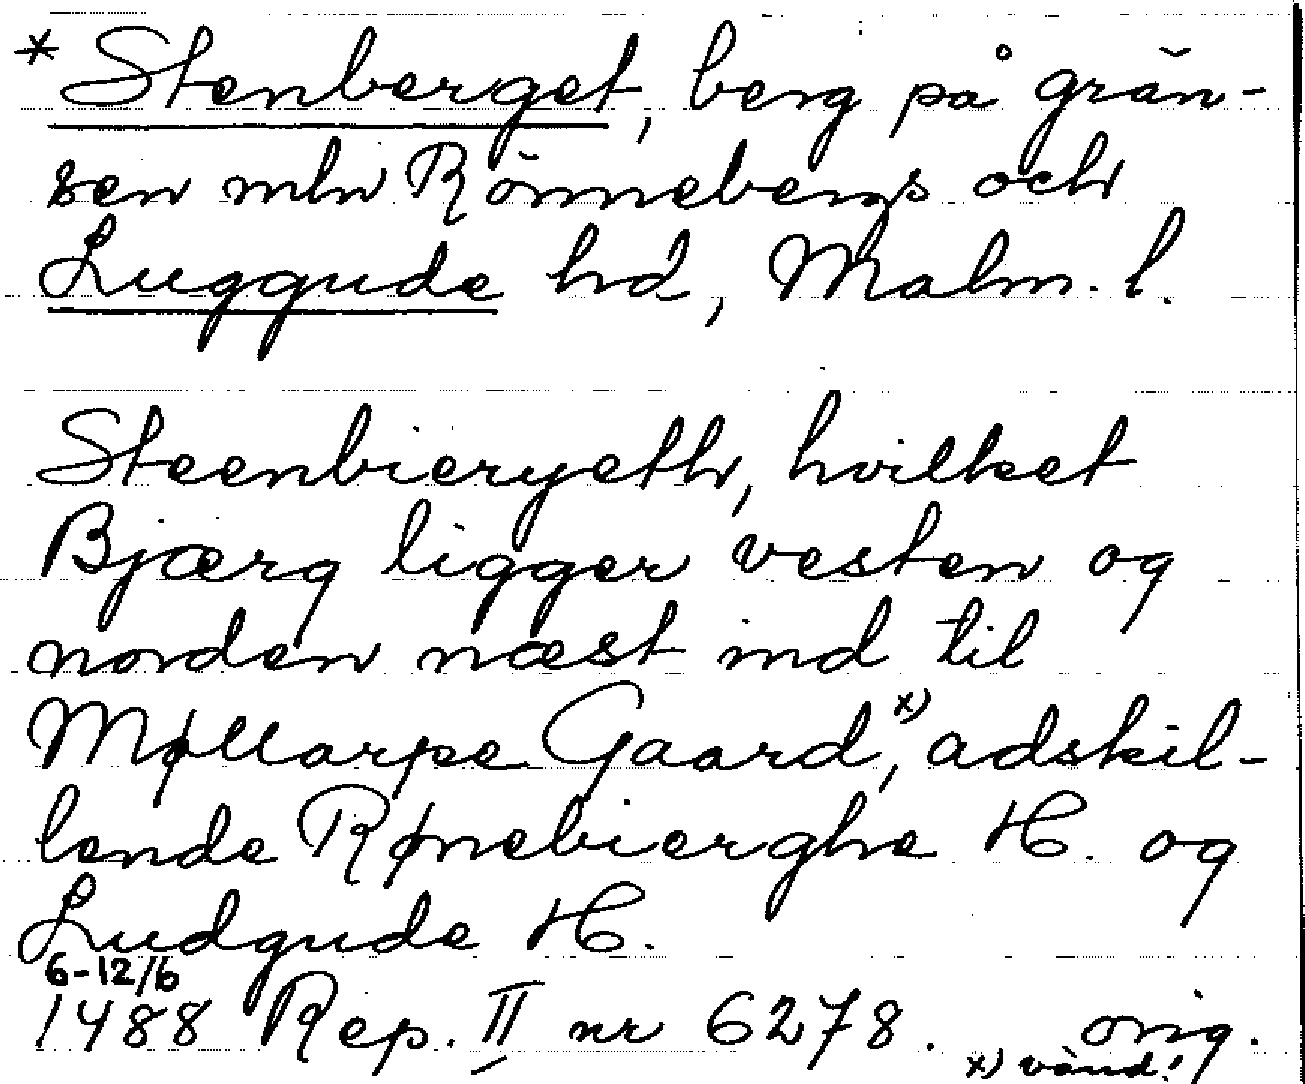 * Stenberget, berg på grän-
sen mln Rönnebergs och
Luggude hd, Malm. l.
Steenbieryeth, hvilket
Bjærg ligger vesten og
norden næst ind til
Møllarpe Gaard,x) adskil-
lende Rønebierghe H. og
Ludgude H.
6-12/6
1488 Rep. II nr 6278. orig.
x) vänd!